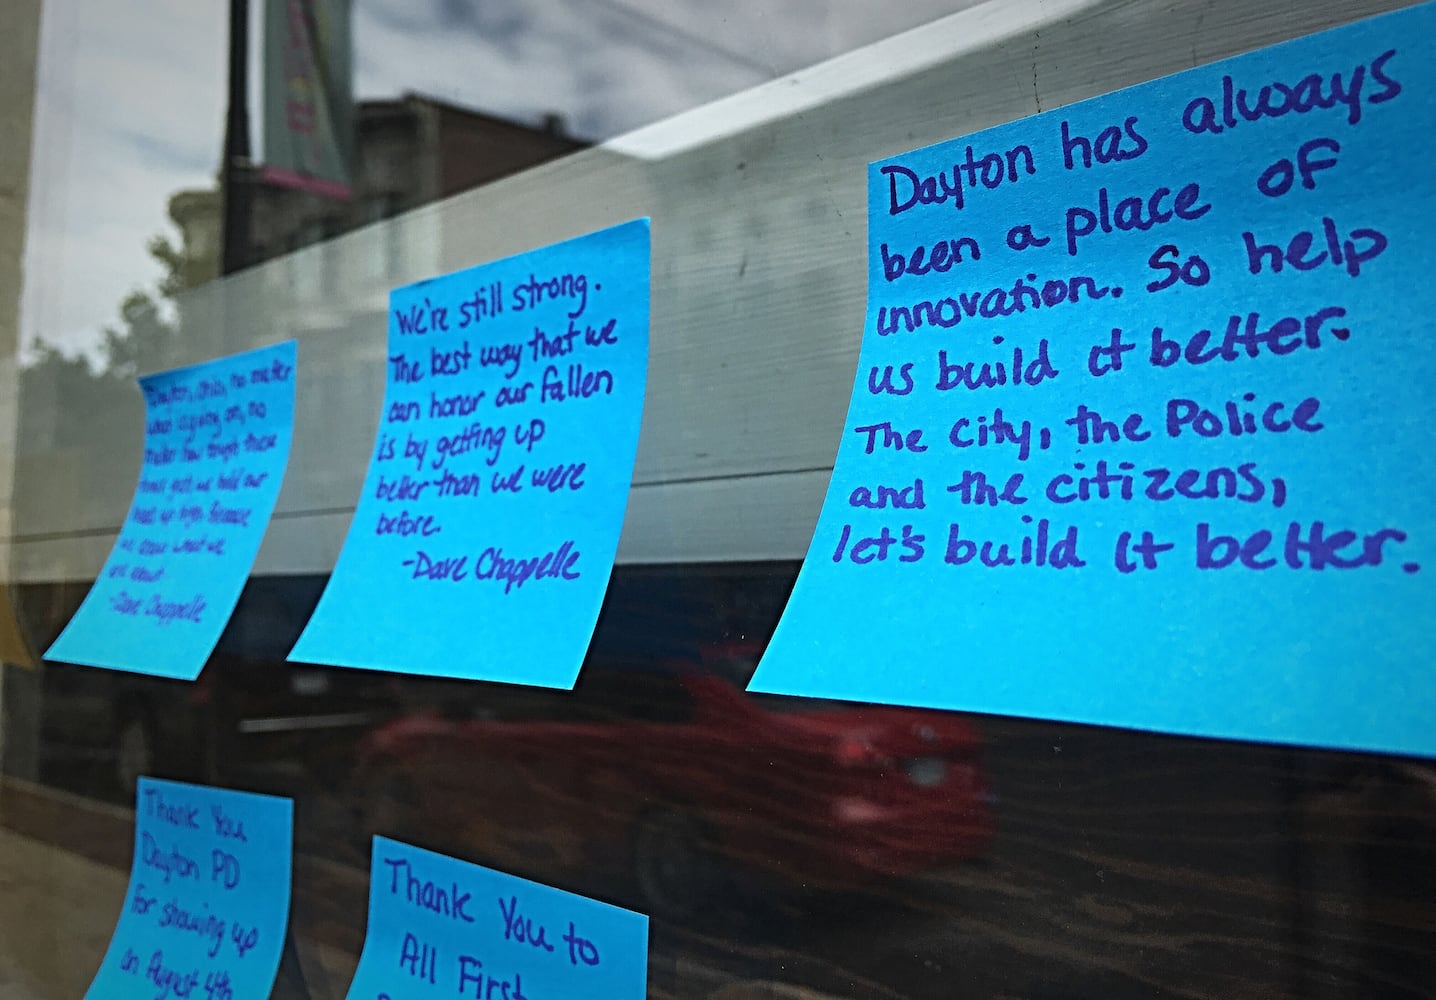 Dayton, Ohio, no matter
what is going on, no
matter how tough these
times get, we hold our
heads up high. Because
we know what we
are about.
-Dave Chappelle
We're still strong.
The best way that we
can honor our fallen
is by getting up
better than we were
before.
-Dave Chappelle
Dayton has always
been a place of
innovation. So help
us build it better.
The city, the Police
and the citizens,
let's build it better.
Thank You
Dayton PD
for showing up
on August 4th
Thank You to
All First